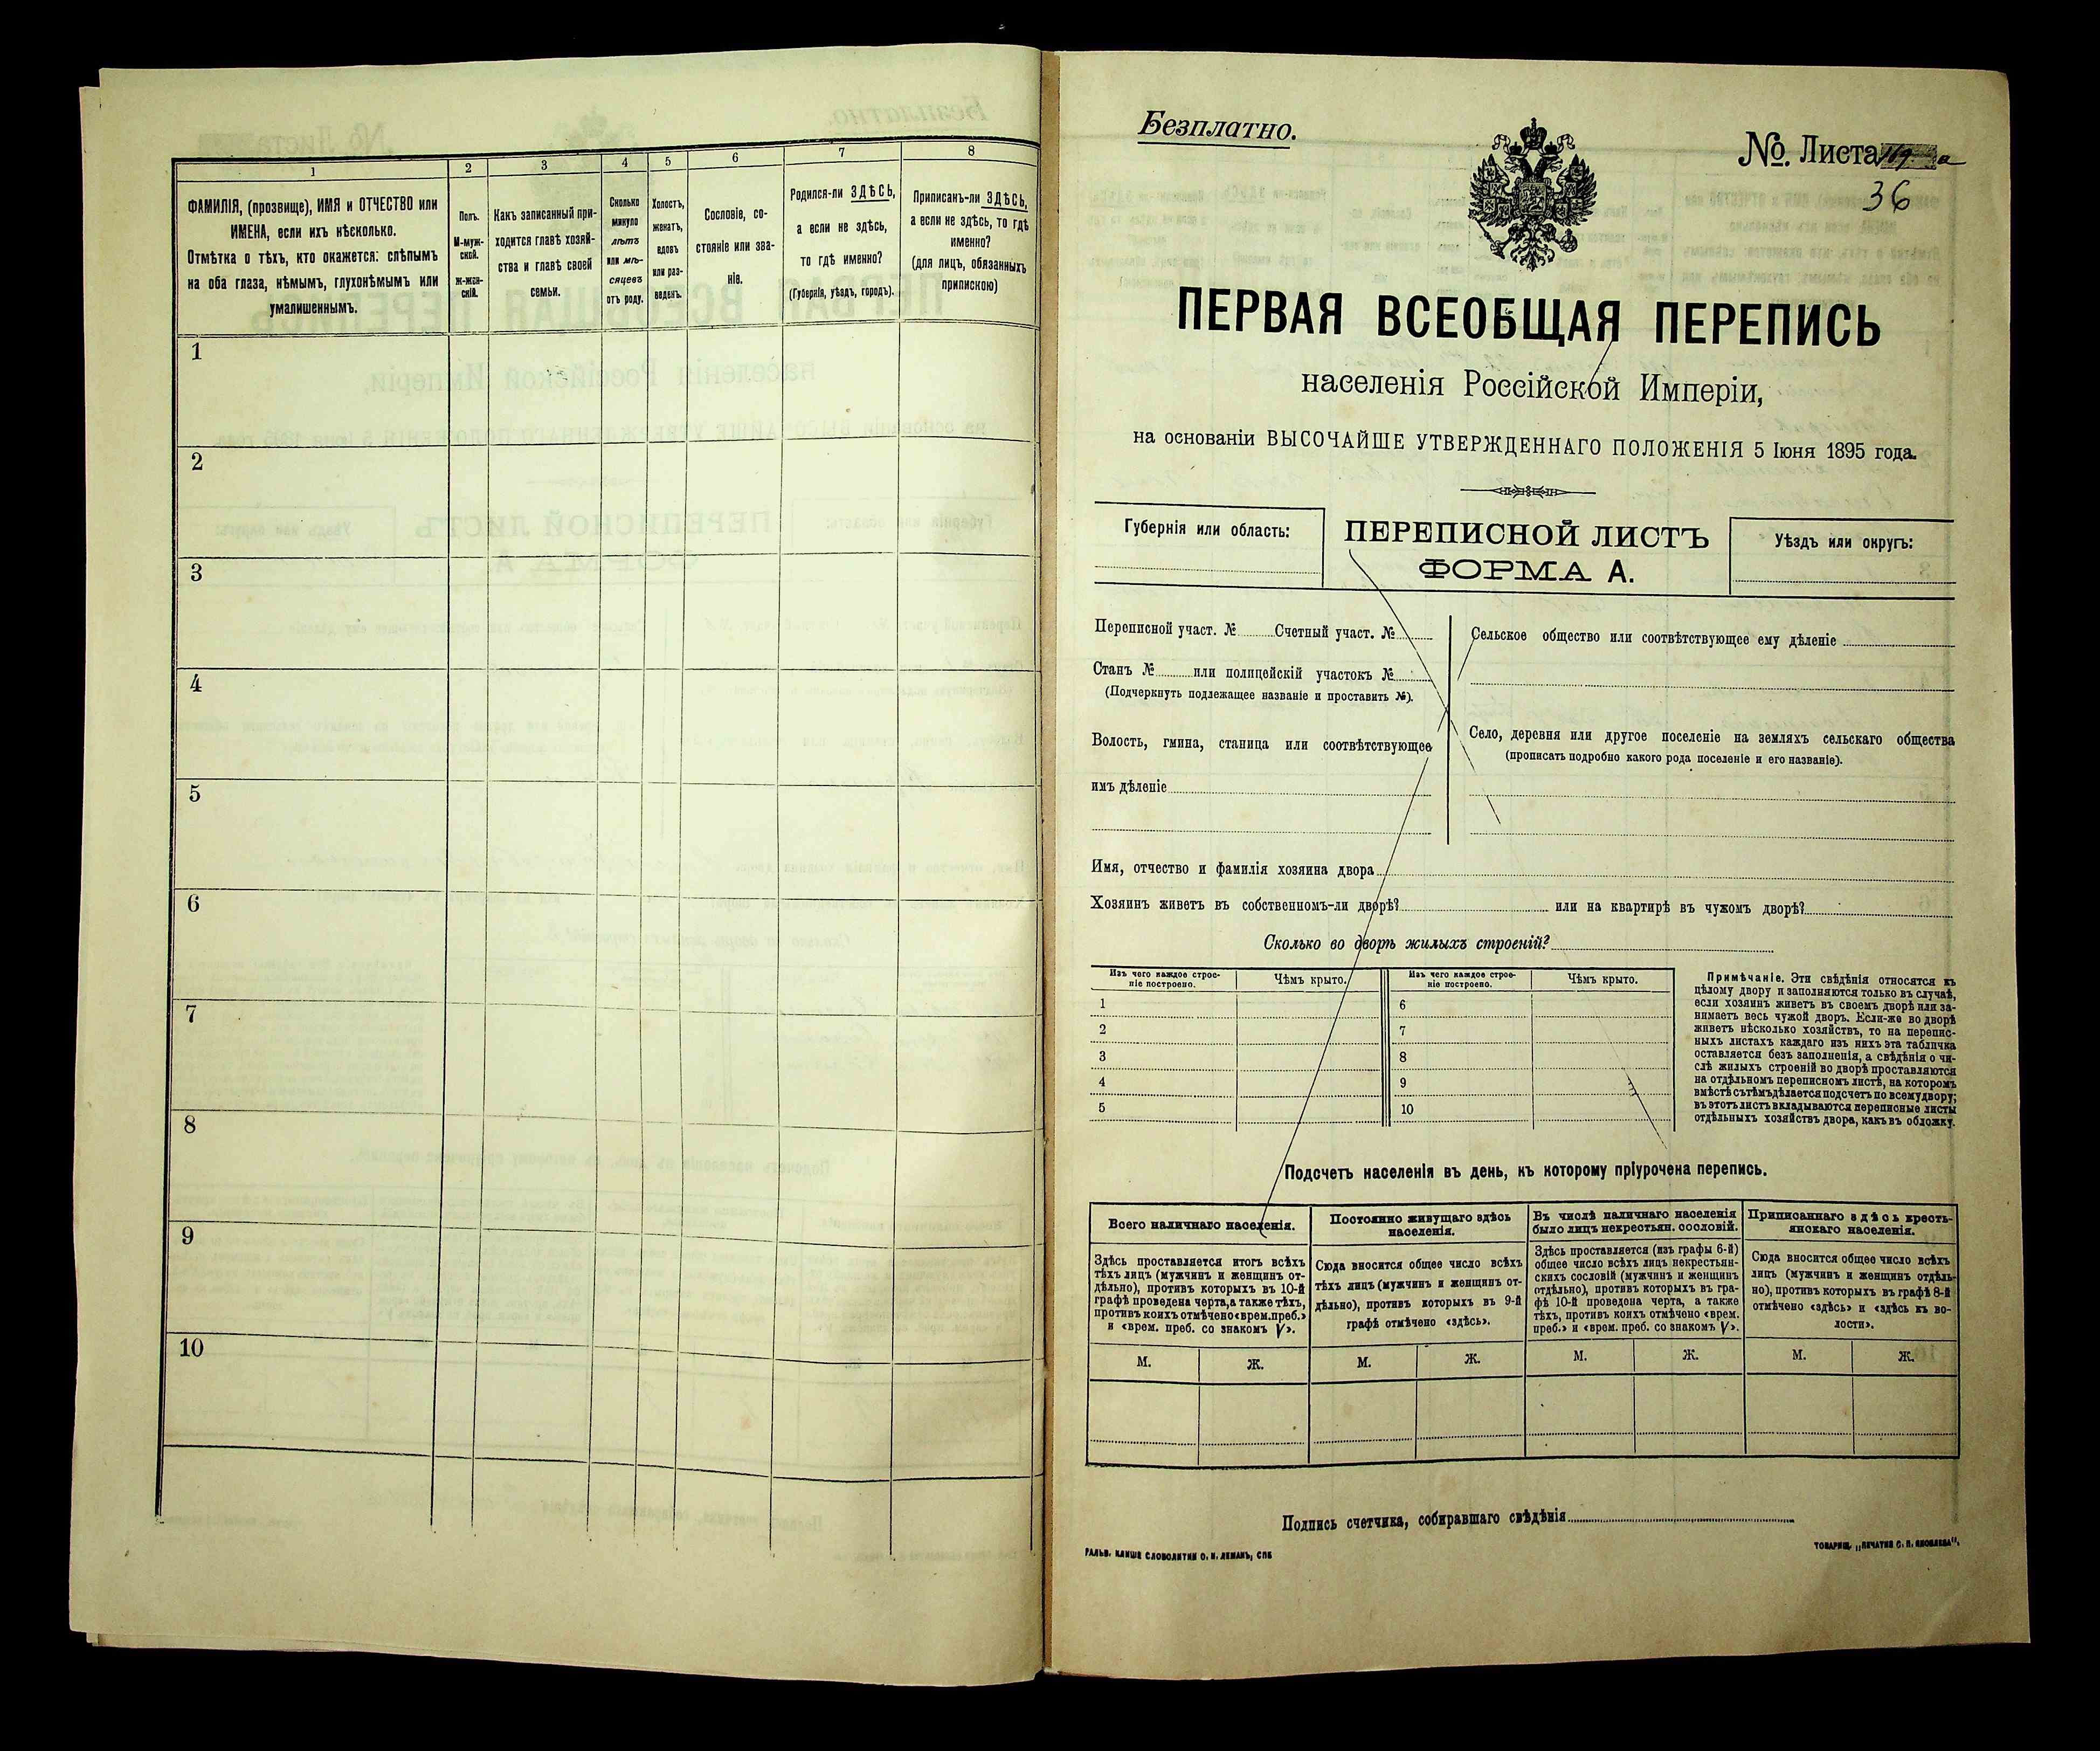 1
2
3
4
5
6
7
8
ФАМИЛІЯ, (прозвище), ИМЯ и ОТЧЕСТВО или
ИМЕНА, если ихъ нѣсколько.
Отмѣтка о тѣхъ, кто окажется: слѣпымъ
на оба глаза, нѣмымъ, глухонѣмымъ или
умалишеннымъ.
Полъ.
М-муж-
ской.
ж-жен-
скій.
Какъ записанный при-
ходится главѣ хозяй-
ства и главѣ своей
семьи.
Сколько
минуло
лѣтъ
или мѣ-
сяцевъ
отъ роду.
Холостъ,
женатъ,
вдовъ
или раз-
веденъ.
Сословіе, со-
стояніе или зва-
ніе.
Родился-ли ЗДѢСЬ,
а если не здѣсь,
то гдѣ именно?
(Губернія, уѣздъ, городъ).
Приписанъ-ли ЗДѢСЬ,
а если не здѣсь, то гдѣ
именно?
(для лицъ, обязанныхъ
припискою)
1
2
3
4
5
6
7
8
9
10
Безплатно.
№. Листа
36
ПЕРВАЯ ВСЕОБЩАЯ ПЕРЕПИСЬ
населенія Россійской Имперіи,
на основаніи ВЫСОЧАЙШЕ УТВЕРЖДЕННАГО ПОЛОЖЕНІЯ 5 Іюня 1895 года.
Губернія или область:
ПЕРЕПИСНОЙ ЛИСТЪ
ФОРМА А.
Уѣздъ или округъ:
Переписной участ. № Счетный участ. №
Станъ № или полицейскій участокъ №
(Подчеркнуть подлежащее названіе и проставить №).
Волость, гмина, станица или соотвѣтствующее
имъ дѣленіе
Сельское общество или соотвѣтствующее ему дѣленіе
Село, деревня или другое поселеніе на земляхъ сельскаго общества
(прописать подробно какого рода поселеніе и его названіе).
Имя, отчество и фамилія хозяина двора
Хозяинъ живетъ въ собственномъ-ли дворѣ? или на квартирѣ въ чужомъ дворѣ?
Сколько во дворѣ жилыхъ строеній?
Изъ чего каждое строе-
ніе построено.
Чѣмъ крыто.
Изъ чего каждое строе-
ніе построено.
Чѣмъ крыто.
1
2
3
4
5
6
7
8
9
10
Примѣчаніе. Эти свѣдѣнія относятся къ
цѣлому двору и заполняются только въ случаѣ,
если хозяинъ живетъ въ своемъ дворѣ или за-
нимаетъ весь чужой дворъ. Если-же во дворѣ
живетъ нѣсколько хозяйствъ, то на перепис-
ныхъ листахъ каждаго изъ нихъ эта табличка
оставляется безъ заполненія, а свѣдѣнія о чи-
слѣ жилыхъ строеній во дворѣ проставляются
на отдѣльномъ переписномъ листѣ, на которомъ
вмѣстѣ съ тѣмъ дѣлается подсчетъ по всему двору;
въ этотъ листъ вкладываются переписные листы
отдѣльныхъ хозяйствъ двора, какъ въ обложку.
Подсчетъ населенія въ день, къ которому пріурочена перепись.
Всего наличнаго населенія.
Здѣсь проставляется итогъ всѣхъ
тѣхъ лицъ (мужчинъ и женщинъ от-
дѣльно), противъ которыхъ въ 10-й
графѣ проведена черта, а также тѣхъ,
противъ коихъ отмѣчено «врем. преб.»
и «врем. преб. со знакомъ V».
Постоянно живущаго здѣсь
населенія.
Сюда вносится общее число всѣхъ
тѣхъ лицъ (мужчинъ и женщинъ от-
дѣльно), противъ которыхъ въ 9-й
графѣ отмѣчено «здѣсь».
Въ числѣ наличнаго населенія
было лицъ некрестьян. сословій.
Здѣсь проставляется (изъ графы 6-й)
общее число всѣхъ лицъ некрестьян-
скихъ сословій (мужчинъ и женщинъ
отдѣльно), противъ которыхъ въ гра-
фѣ 10-й проведена черта, а также
тѣхъ, противъ коихъ отмѣчено «врем.
преб.» и «врем. преб. со знакомъ V».
Приписаннаго здѣсь кресть-
янскаго населенія.
Сюда вносится общее число всѣхъ
лицъ (мужчинъ и женщинъ отдѣль-
но), противъ которыхъ въ графѣ 8-й
отмѣчено «здѣсь» и «здѣсь къ во-
лости».
М. Ж. М. Ж. М. Ж. М. Ж.
Подпись счетчика, собиравшаго свѣдѣнія
ГАЛЬВ. КЛИШЕ СЛОВОЛИТНИ О. И. ЛЕМАНЪ, СПБ
ТОВАРИЩ. „ПЕЧАТНЯ С. П. ЯКОВЛЕВА".